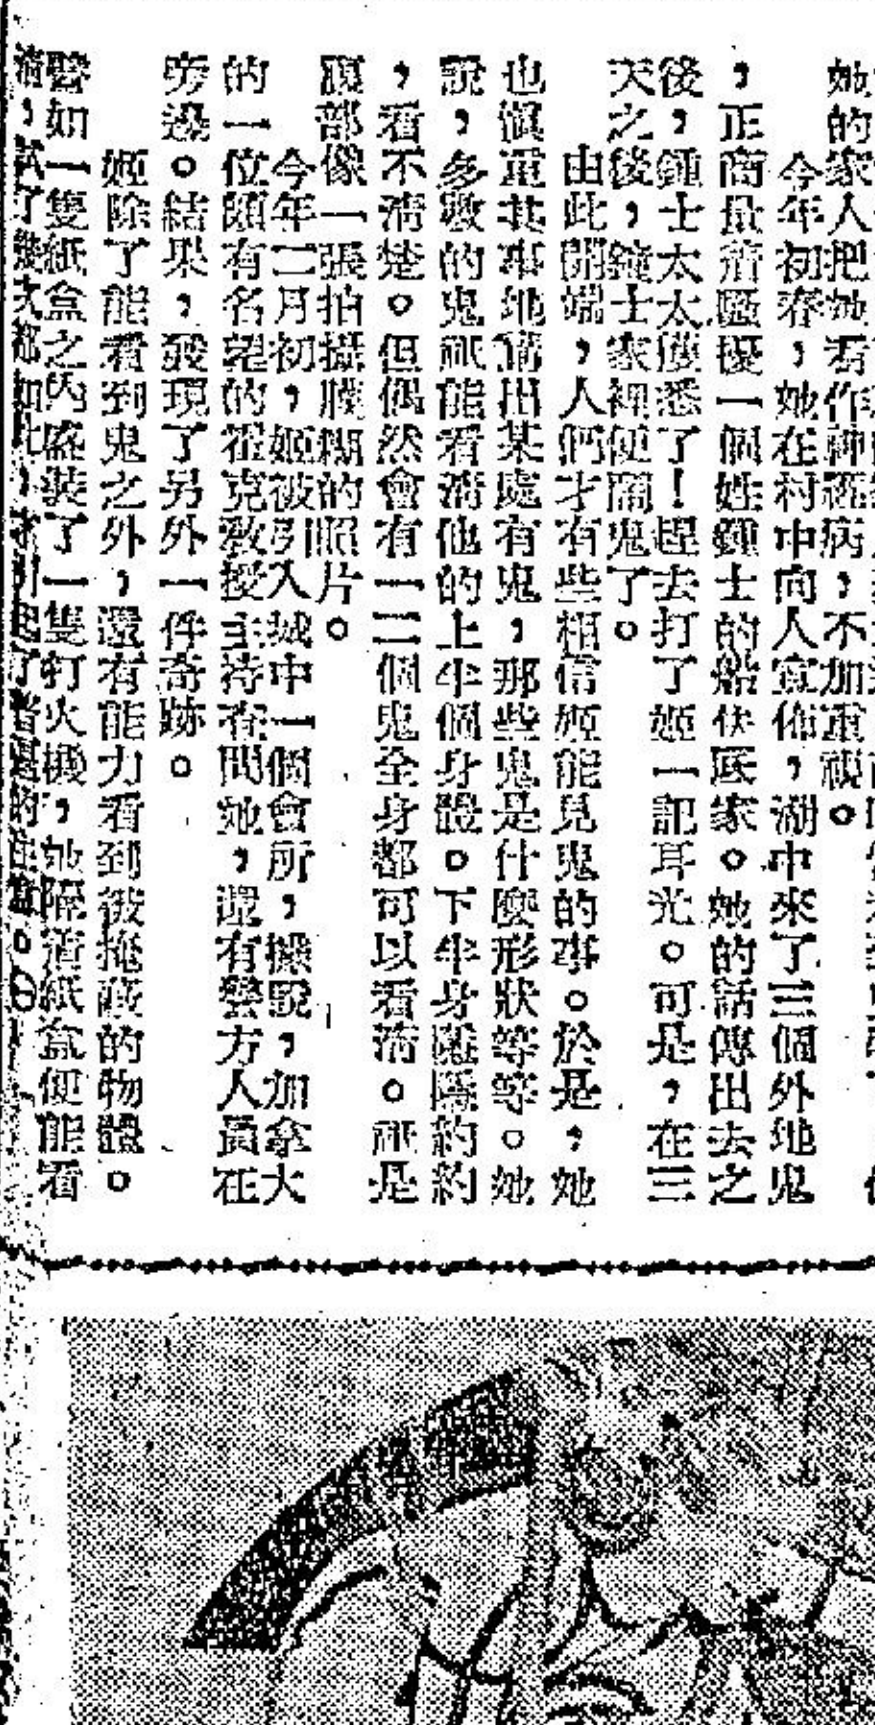 她的家人把她看作神經病，不加重視。
今年初春，她在村中向人宣佈，湖中來了三個外地鬼
，正商量着騷擾一個姓鍾士的船伕底家。她的話傳出去之
後，鍾士太太獲悉了！趕去打了姬一記耳光。可是，在三
天之後，鐘士家裡便鬧鬼了。
由此開端，人們才有些相信姬能見鬼的事。於是，她
也慎重其事地講出某處有鬼，那些鬼是什麼形狀等等。她
說，多數的鬼祇能看清他的上半個身體。下半身隱隱約約
，看不清楚。但偶然會有一二個鬼全身都可以看清。祇是
頭部像一張拍攝糢糊的照片。
今年二月初，姬被引入城中一個會所，據說，加拿大
的一位頗有名望的霍克教授主持查問她，還有警方人員在
旁邊。結果，發現了另外一件奇跡。
姬除了能看到鬼之外，還有能力看到被掩蔽的物體。
譬如一隻紙盒之內盛裝了一隻打火機，她隔着紙盒便能看
清，試了幾次都如此，才引起了當局的注意。